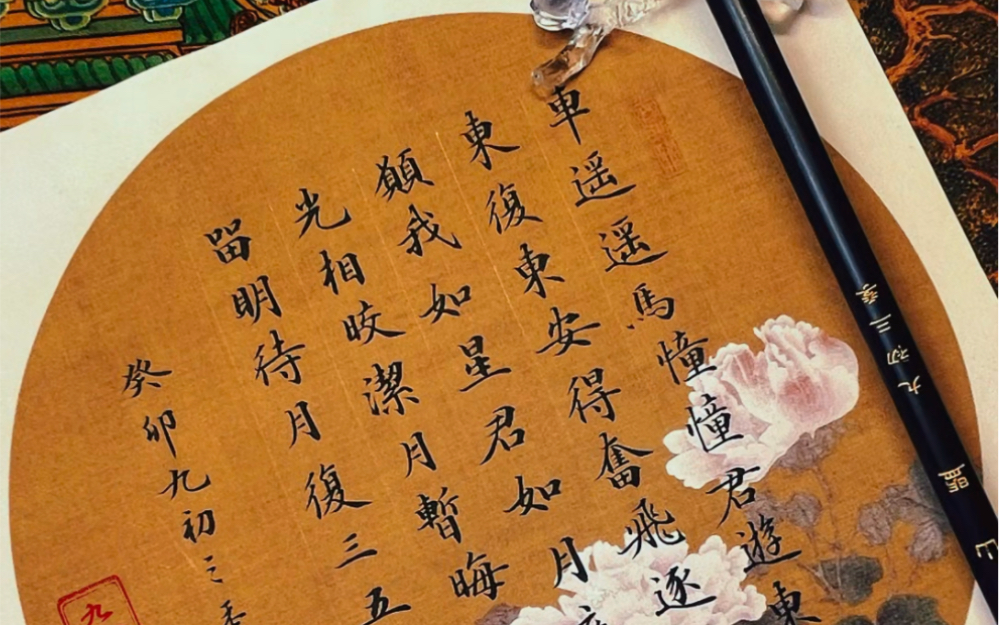 車遥遥馬憧憧君遊東
東復東安得奮飛逐
願我如星君如月
光相皎潔月暫晦
留明待月復三五
癸卯九初三
九
九初三